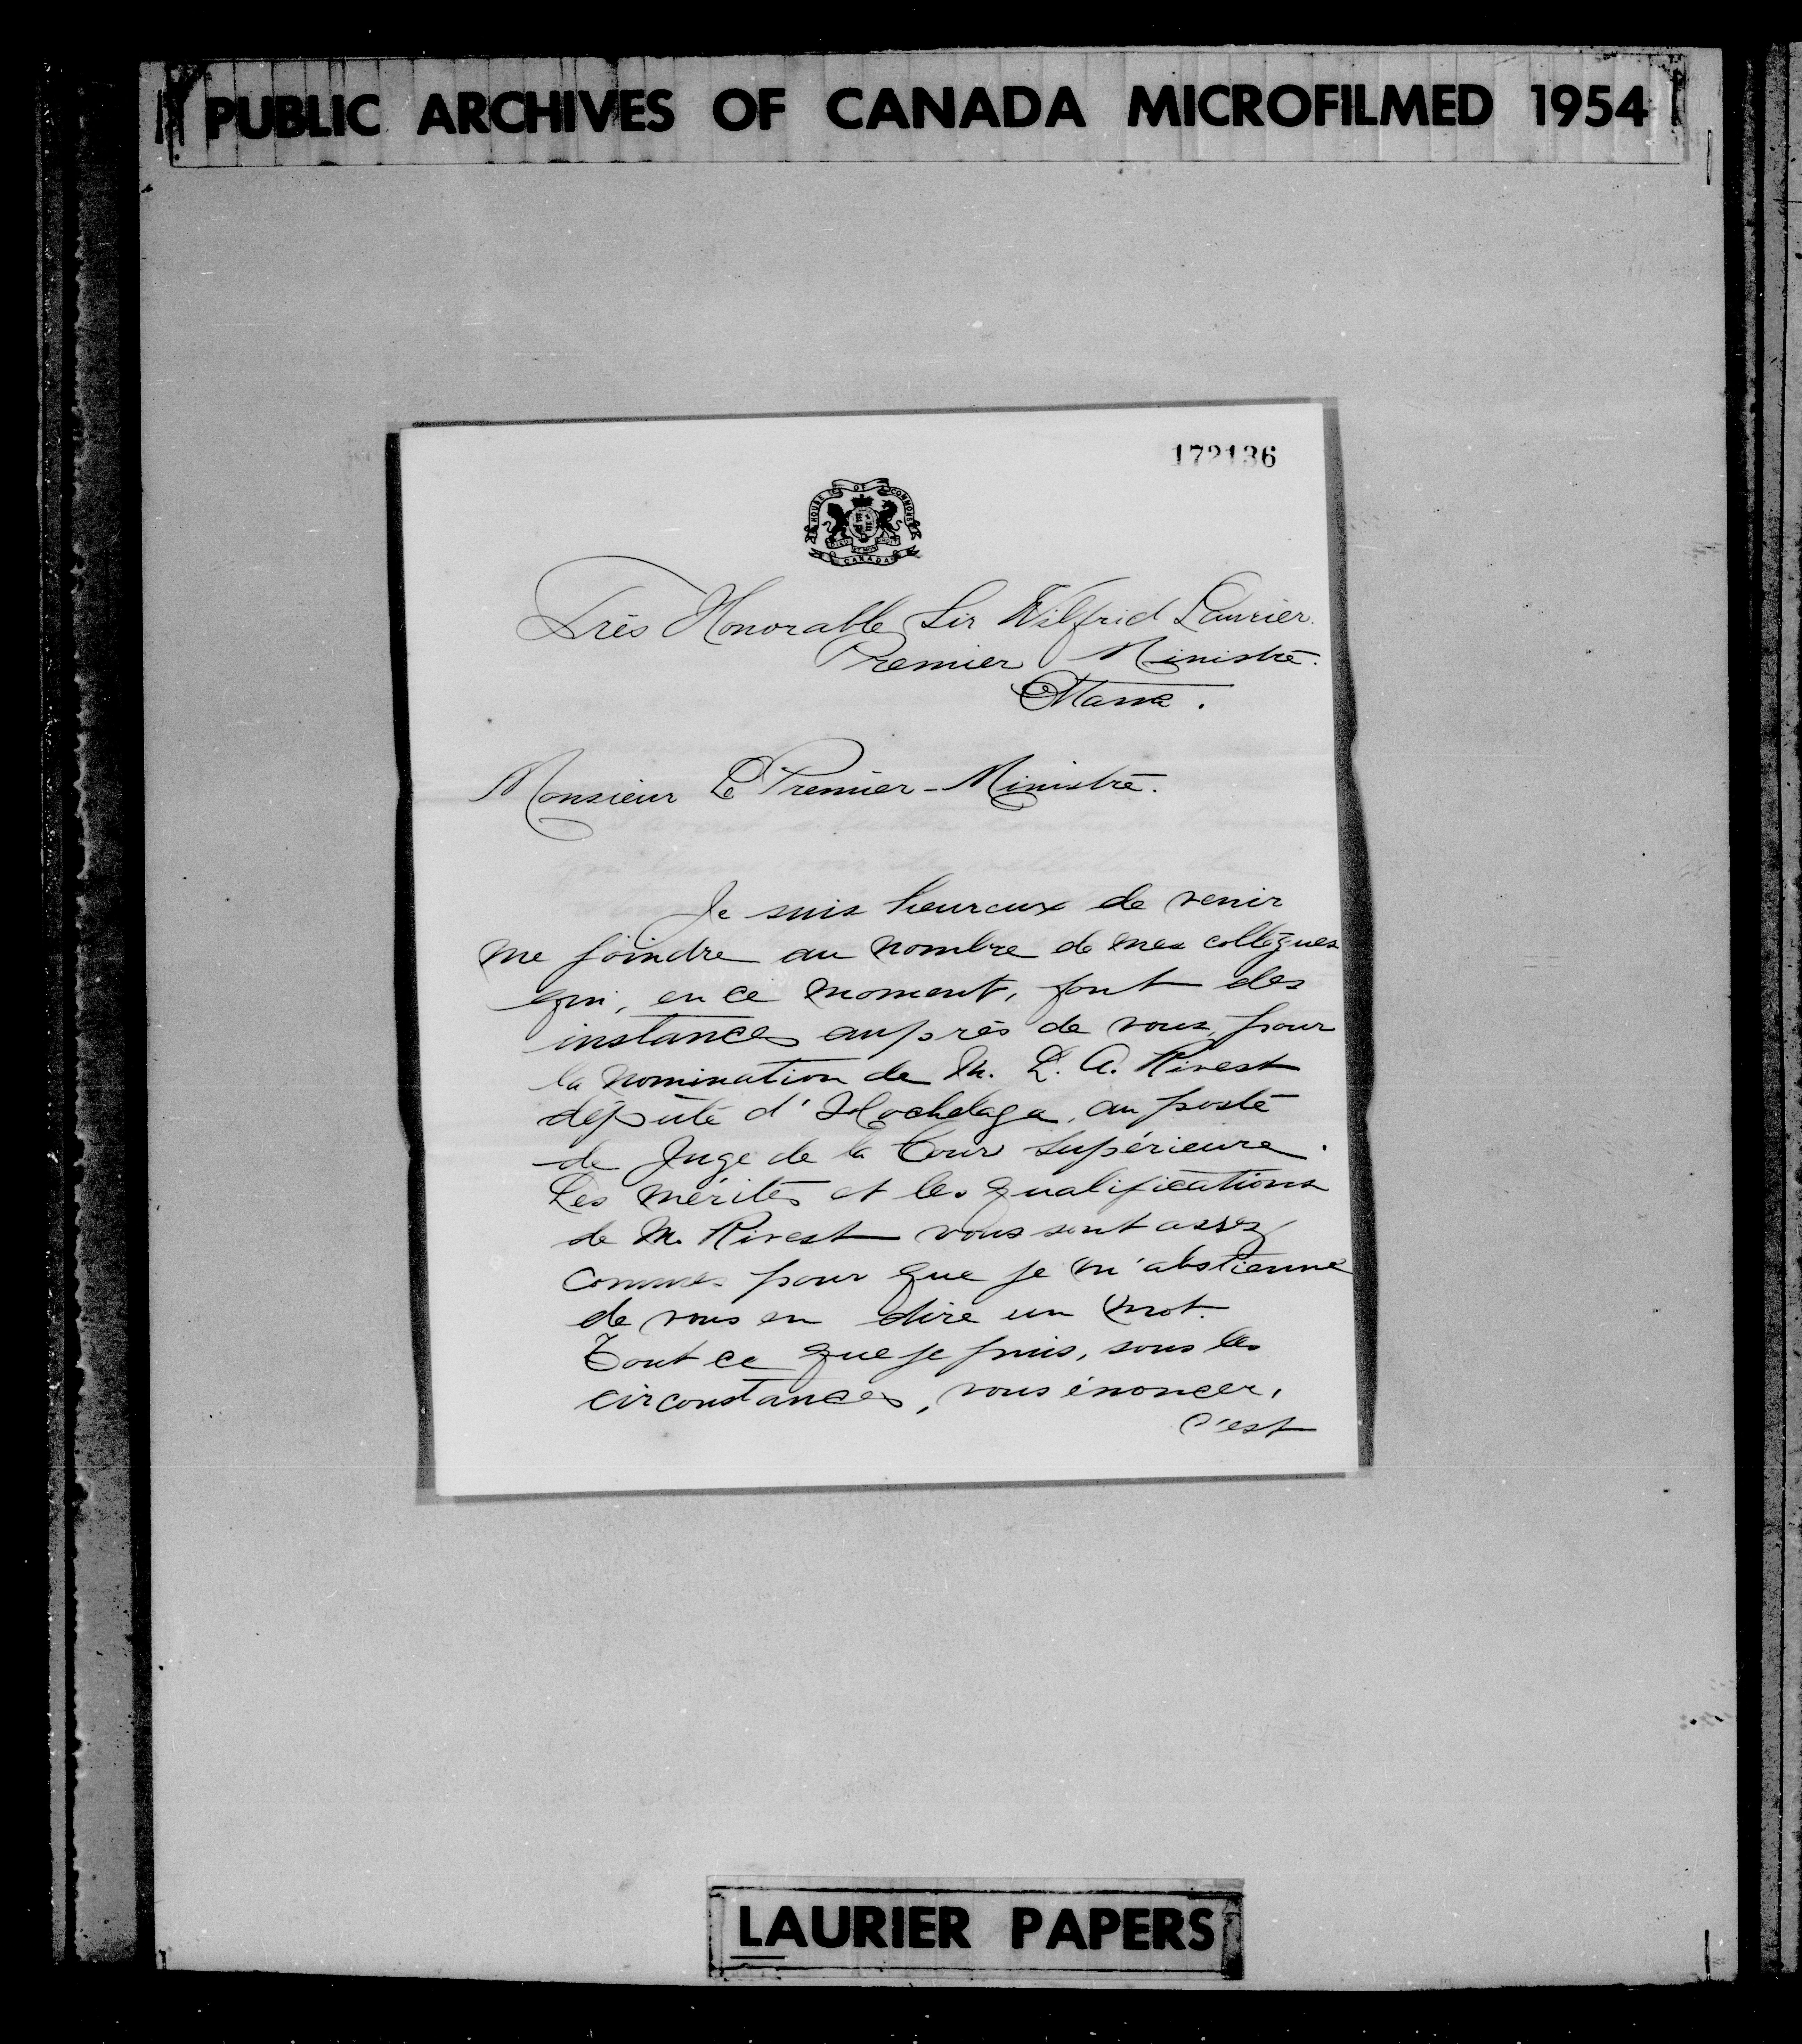 PUBLIC ARCHIVES OF CANADA MICROFILMED 1954
172136
HOUSE OF COMMONS
DIEU ET MON DROIT
CANADA
Très Honorable Sir Wilfrid Laurier.
Premier Ministre.
Ottawa.
Monsieur Le Premier-Ministre.
Je suis heureux de venir
me joindre au nombre de mes collègues
qui, en ce moment, font des
instances auprès de vous, pour
la nomination de M. L. A. Rivest
député d'Hochelaga, au poste
de Juge de la Cour Supérieure.
Les mérites et les qualifications
de M. Rivest vous sont assez
connues pour que je m'abstienne
de vous en dire un mot.
Tout ce que je puis, sous les
circonstances, vous énoncer,
c'est
LAURIER PAPERS